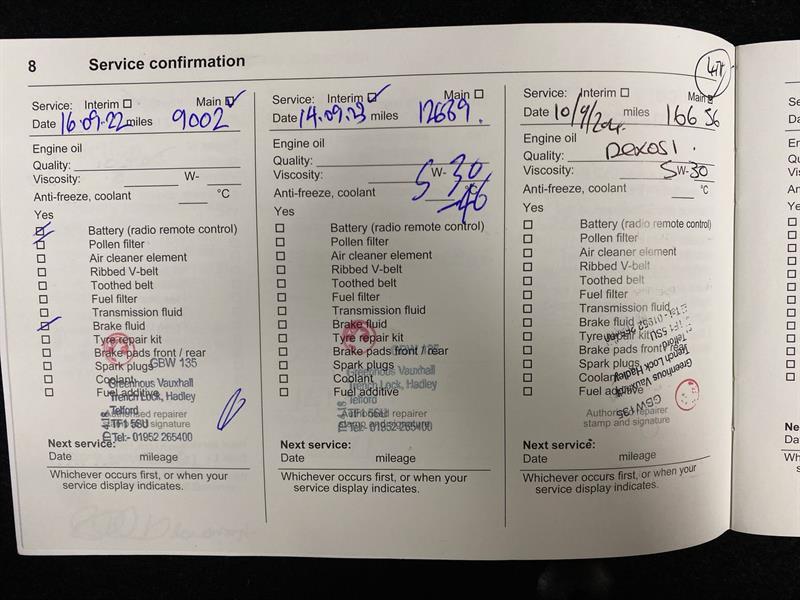 8 Service confirmation
Service: Interim Main
Date 16.09.22 miles 9002
Engine oil
Quality:
Viscosity: W-
Anti-freeze, coolant °C
Yes
Battery (radio remote control)
Pollen filter
Air cleaner element
Ribbed V-belt
Toothed belt
Fuel filter
Transmission fluid
Brake fluid
Tyre repair kit
Brake pads front / rear
Spark plugs
Coolant
Fuel additive
GBW 135
Greenhous Vauxhall
Trench Lock, Hadley
Telford
TF1 5SU
Tel:- 01952 265400
Authorised repairer
stamp and signature
Next service:
Date mileage
Whichever occurs first, or when your
service display indicates.
Service: Interim Main
Date 14.09.23 miles 12639.
Engine oil
Quality:
Viscosity: 5 W- 30
Anti-freeze, coolant -46 °C
Yes
Battery (radio remote control)
Pollen filter
Air cleaner element
Ribbed V-belt
Toothed belt
Fuel filter
Transmission fluid
Brake fluid
Tyre repair kit
Brake pads front / rear
Spark plugs
Coolant
Fuel additive
GBW 135
Greenhous Vauxhall
Trench Lock, Hadley
Telford
TF1 5SU
Tel:- 01952 265400
Authorised repairer
stamp and signature
Next service:
Date mileage
Whichever occurs first, or when your
service display indicates.
Service: Interim Main
Date 10/9/24 miles 16656
Engine oil
Quality: Dexos1.
Viscosity: 5W-30
Anti-freeze, coolant °C
Yes
Battery (radio remote control)
Pollen filter
Air cleaner element
Ribbed V-belt
Toothed belt
Fuel filter
Transmission fluid
Brake fluid
Tyre repair kit
Brake pads front / rear
Spark plugs
Coolant
Fuel additive
GBW135
Greenhous Vauxhall
Trench Lock Hadley
Telford
TF1 5SU
Authorised repairer
stamp and signature
Next service:
Date mileage
Whichever occurs first, or when your
service display indicates.